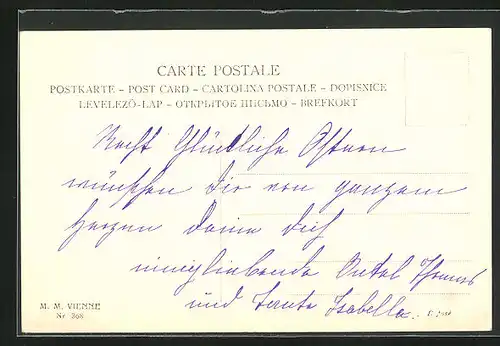 CARTE POSTALE
POSTKARTE – POST CARD – CARTOLINA POSTALE – DOPISNICE
LEVELEZŐ-LAP – ОТКРЫТОЕ ПИСЬМО – BREFKORT
Recht Glückliche Ostern
wünschen dir von ganzem
Herzen deine dich
innigliebende Onkel Thomas
und Tante Isabella.
M. M. VIENNE
Nr. 268